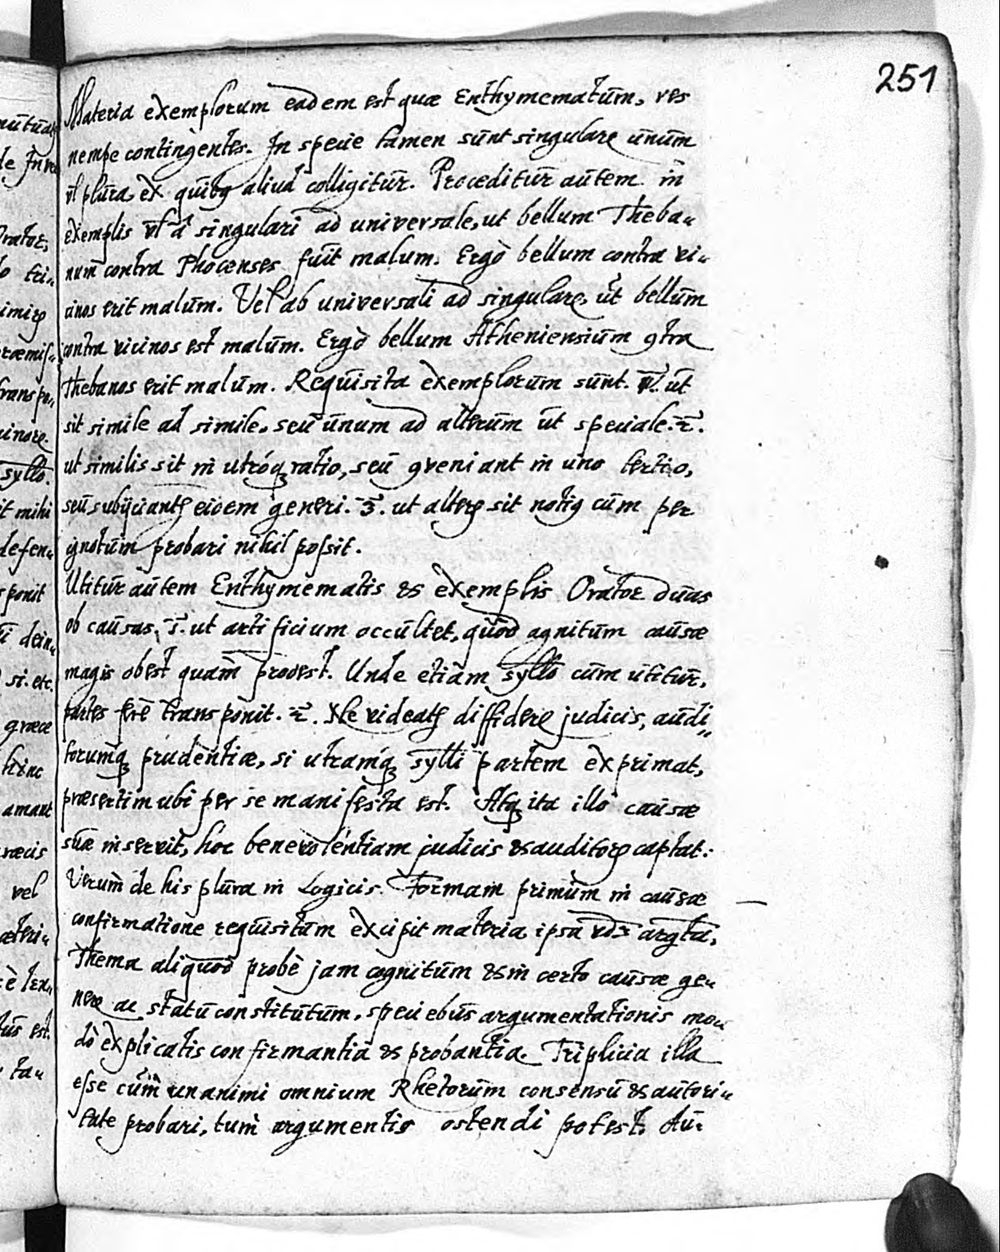 251
Materia exemplorum eadem est quæ Enthymematum, res
nempe contingentes. In specie tamen sunt singulare unum
vl plura, ex quibꝯ aliud colligitur. Proceditur autem in
exemplis vl à singulari ad universale, ut bellum Theba-
num contra Phocenses fuit malum. Ergò bellum contra vi-
cinos erit malum. Vel ab universali ad singulare, ut bellum
contra vicinos est malum. Ergò bellum Atheniensium ꝯtra
Thebanos erit malum. Requisita exemplorum sunt. 1. ut
sit simile ad simile, seu unum ad alterum ut speciale. 2.
ut similis sit in utróqꝫ ratio, seu ꝯveniant in uno tertio,
seu subijciantꝭ eidem generi. 3. ut alterꝭ sit notiꝯ cum per
ignotum probari nihil possit.
Utitur autem Enthymematis & exemplis Orator duas
ob causas, 1. ut artificium occultet, quod agnitum causæ
magis obest quam prodest. Unde etiam syllo cum utitur,
partes ferè transponit. 2. Ne videatꝭ diffidere judicis, audi-
torumqꝫ prudentiæ, si utramqꝫ sylli partem exprimat,
præsertim ubi per se manifesta est. Atqꝫ ita illo causæ
suæ inservit, hoc benevolentiam judicis & auditorꝭ captat:
Verum de his plura in Logicis. Formam primum in causæ
confirmatione requisitum excipit materia ipsa argta,
Thema aliquod probè jam cognitum & in certo causæ ge-
nere ac statu constitutum, speciebus argumentationis mo-
dò explicatis confirmantia & probantia. Triplicia illa
esse cùm unanimi omnium Rhetorum consensu & autori-
tate probari, tum argumentis ostendi potest. Au-